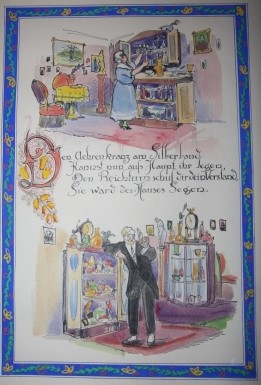 Den Aehrenkranz am Silberband
Kannst nun aufs Haupt ihr legen,
Den Reichtum schuf dir dein Verstand
Sie ward des Hauses Segen.